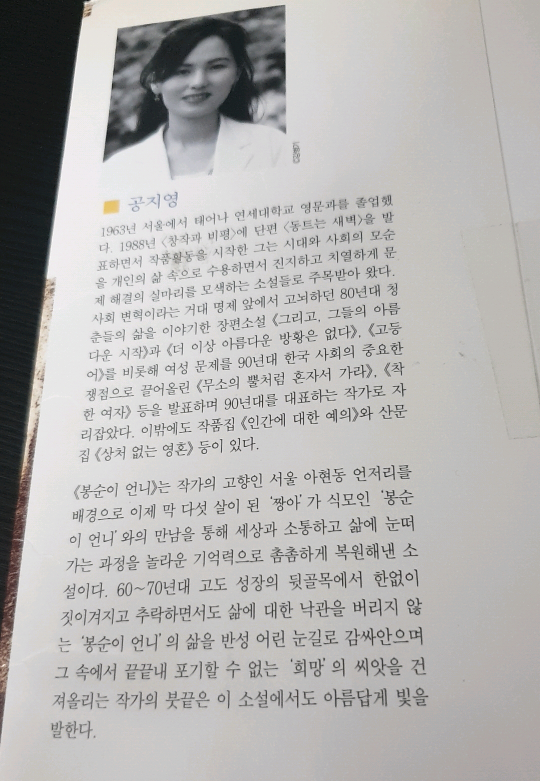 공지영
1963년 서울에서 태어나 연세대학교 영문과를 졸업했
다. 1988년 〈창작과 비평〉에 단편 〈동트는 새벽〉을 발
표하면서 작품활동을 시작한 그는 시대와 사회의 모순
을 개인의 삶 속으로 수용하면서 진지하고 치열하게 문
제 해결의 실마리를 모색하는 소설들로 주목받아 왔다.
사회 변혁이라는 거대 명제 앞에서 고뇌하던 80년대 청
춘들의 삶을 이야기한 장편소설 《그리고, 그들의 아름
다운 시작》과 《더 이상 아름다운 방황은 없다》, 《고등
어》를 비롯해 여성 문제를 90년대 한국 사회의 중요한
쟁점으로 끌어올린 《무소의 뿔처럼 혼자서 가라》, 《착
한 여자》 등을 발표하며 90년대를 대표하는 작가로 자
리잡았다. 이밖에도 작품집 《인간에 대한 예의》와 산문
집 《상처 없는 영혼》 등이 있다.
《봉순이 언니》는 작가의 고향인 서울 아현동 언저리를
배경으로 이제 막 다섯 살이 된 ‘짱아’가 식모인 ‘봉순
이 언니’와의 만남을 통해 세상과 소통하고 삶에 눈떠
가는 과정을 놀라운 기억력으로 촘촘하게 복원해낸 소
설이다. 60~70년대 고도 성장의 뒷골목에서 한없이
짓이겨지고 추락하면서도 삶에 대한 낙관을 버리지 않
는 ‘봉순이 언니’의 삶을 반성 어린 눈길로 감싸안으며
그 속에서 끝끝내 포기할 수 없는 ‘희망’의 씨앗을 건
져올리는 작가의 붓끝은 이 소설에서도 아름답게 빛을
발한다.